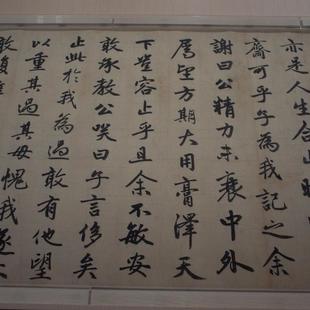 亦是人生合止
齋可乎子為我記之余
謝曰公精力未衰中外
屬望方期大用膏澤天
下豈容止乎且余不敏安
敢承教公咲曰子言侈矣
止此於我為過敢有他望
以重其過其毋愧我遂
敢復